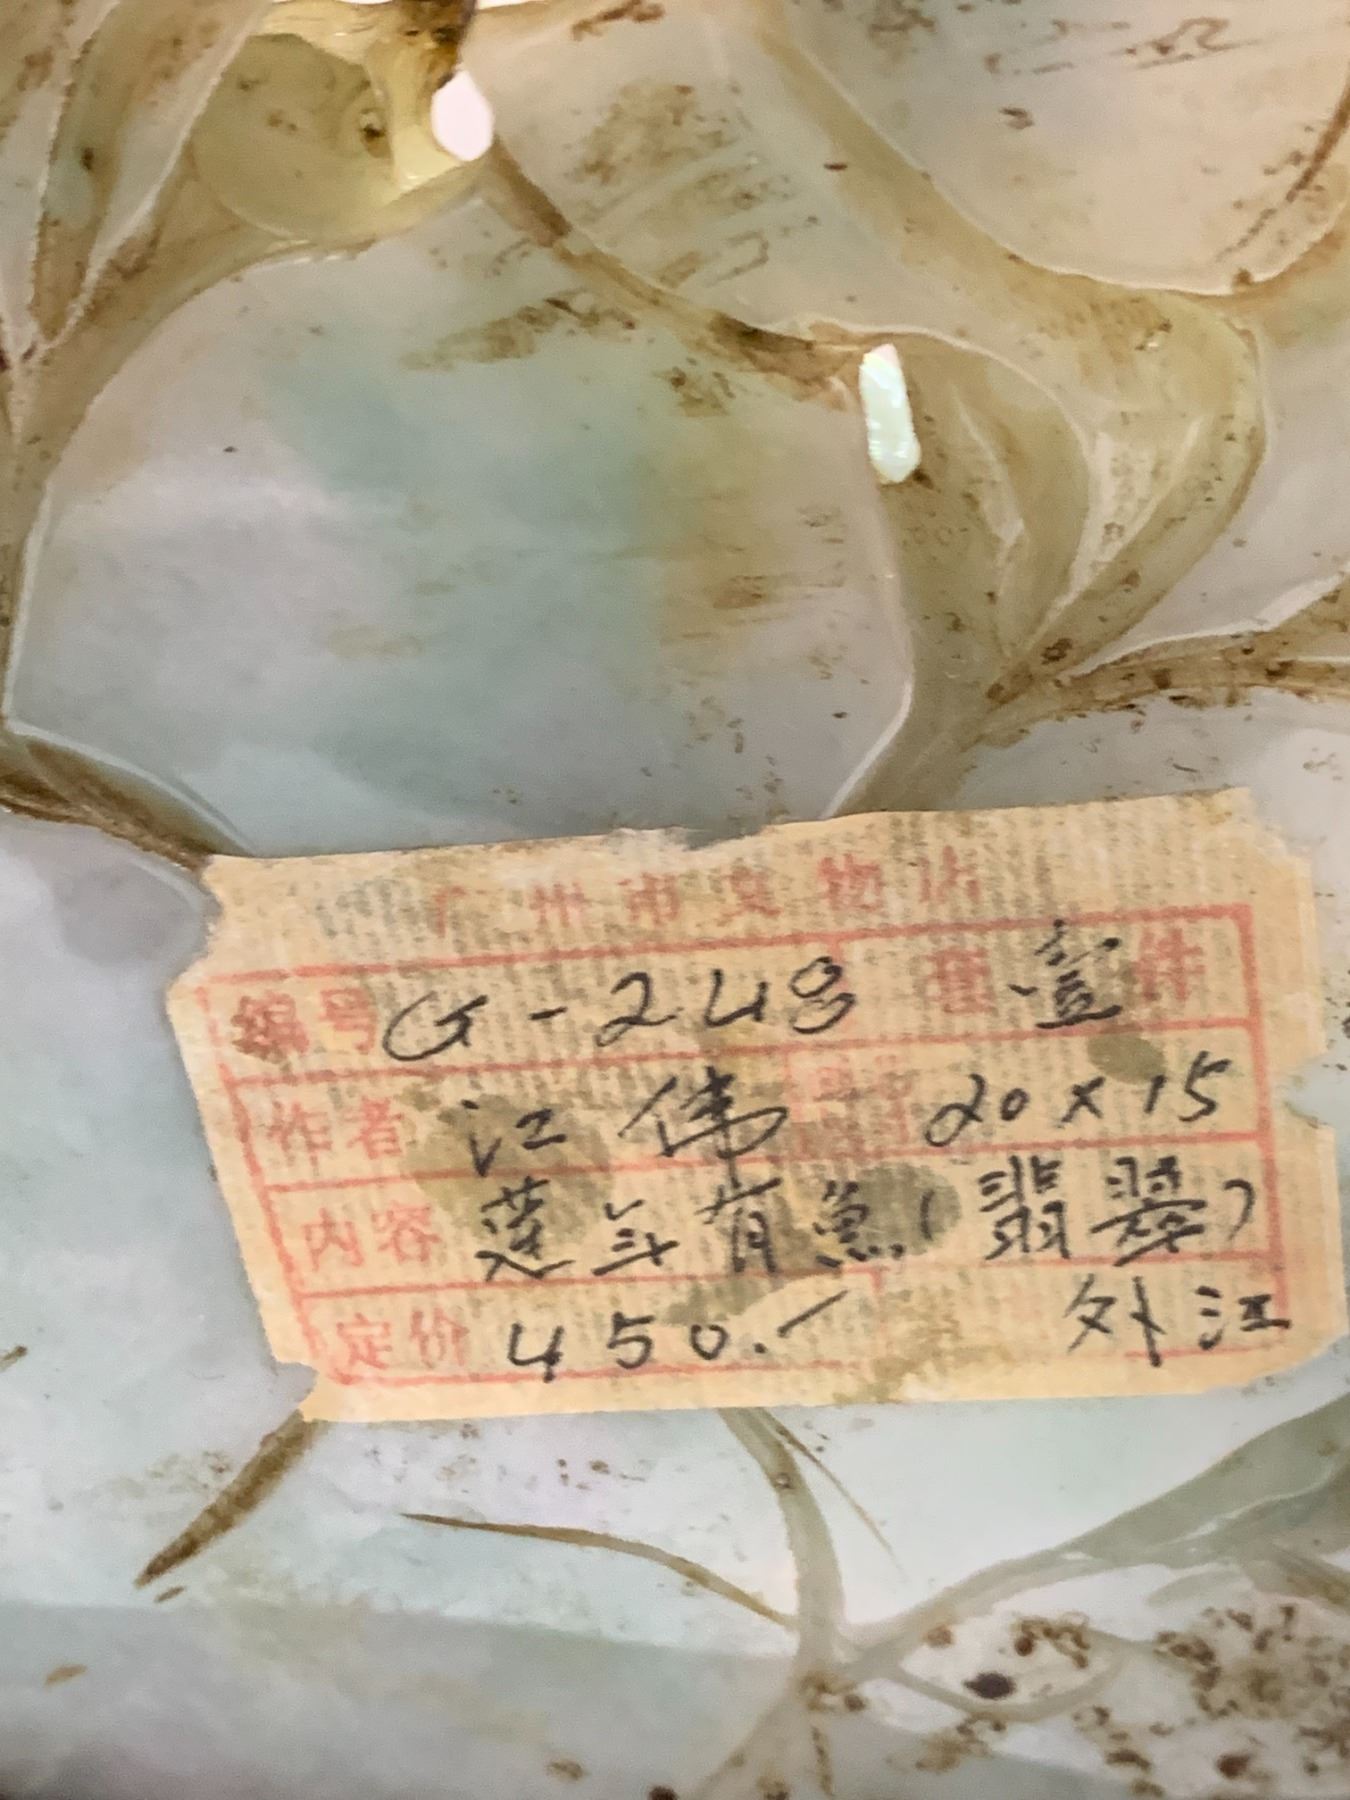 广州市文物店
编号 G-248 壹件
作者 江伟 20×15
内容 莲年有魚(翡翠)
定价 450.- 外江